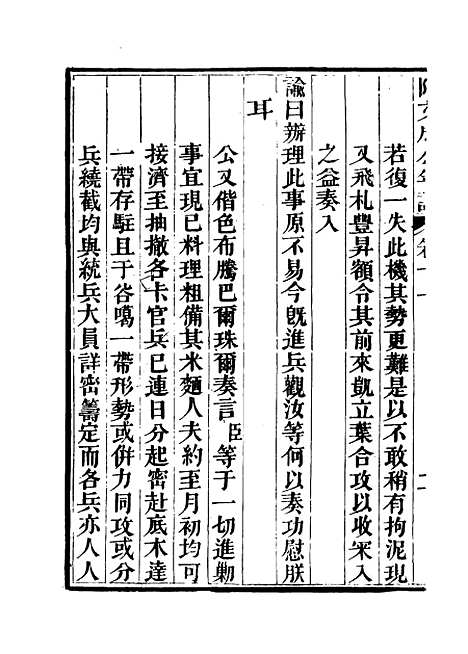 若復一失此機其勢更難是以不敢稍有拘泥現
又飛札豐昇額令其前來凱立葉合攻以收罙入
之益奏入
諭曰辦理此事原不易今旣進兵觀汝等何以奏功慰朕
耳
公又偕色布騰巴爾珠爾奏言臣等于一切進勦
事宜現已料理粗備其米麵人夫約至月初均可
接濟至抽撤各卡官兵已連日分起密赴底木達
一帶存駐且于谷噶一帶形勢或併力同攻或分
兵繞截均與統兵大員詳密籌定而各兵亦人人